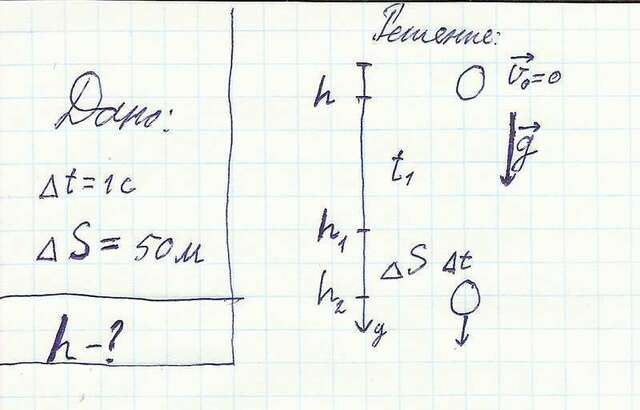 Дано:
Δt=1с
ΔS=50м
h-?
Решение:
h
V₀=0
g
t₁
h₁
ΔS Δt
h₂
y